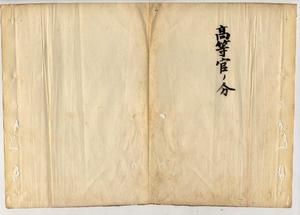 高等官ノ分